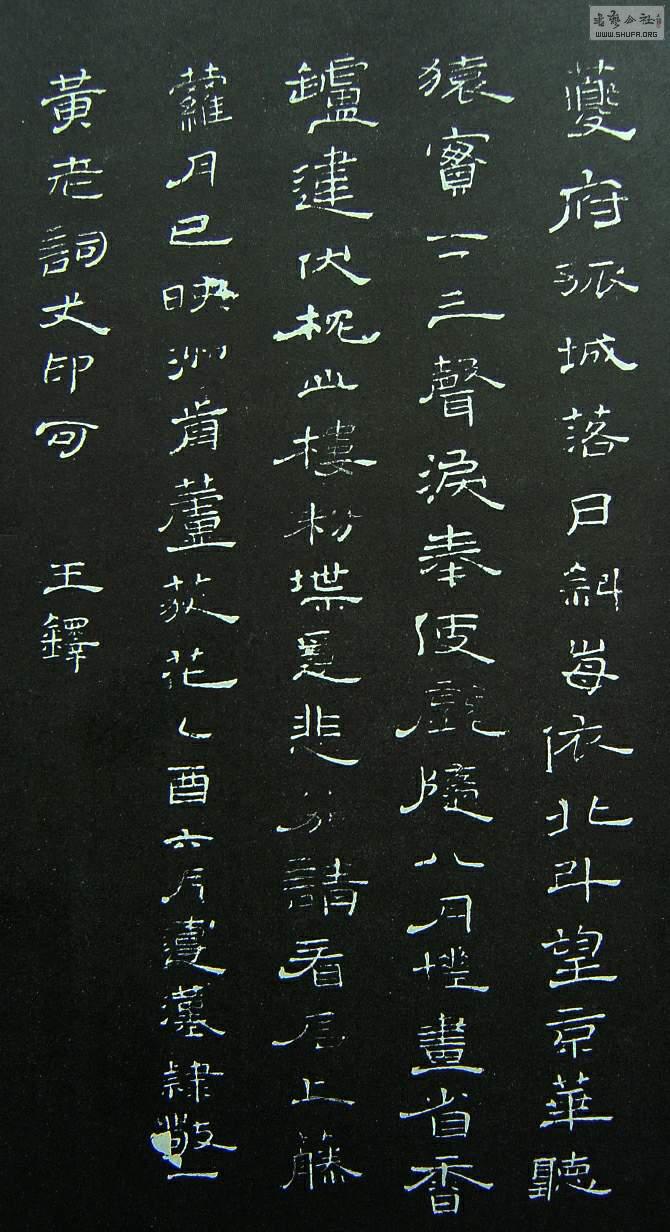 夔府孤城落日斜每依北斗望京華聽
猿實下三聲淚奉使虛隨八月槎畫省香
鑪違伏枕山樓粉堞㥯悲笳請看石上藤
蘿月已映洲前蘆荻花乙酉六月漢隸敬一
黃老詞丈印可 王鐸
书艺公社
WWW.SHUFA.ORG